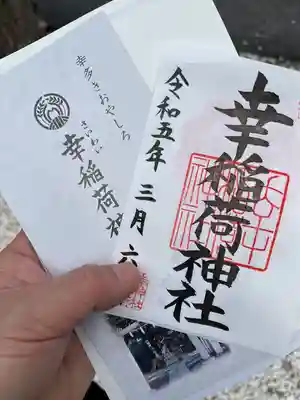 幸多きおやしろ
さいわい
幸稲荷神
幸稲荷神社
令和五年三月六